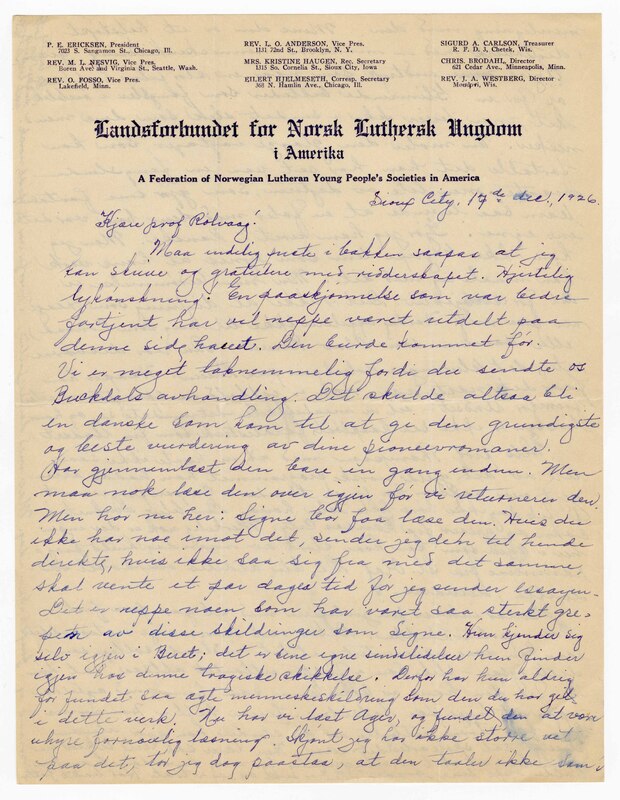 P. E. ERICKSEN, President
7023 S. Sangamon St., Chicago, Ill.
REV. M. L. NESVIG, Vice Pres.
Boren Ave. and Virginia St., Seattle, Wash.
REV. O. FOSSO, Vice Pres.
Lakefield, Minn.
REV. L. O. ANDERSON, Vice Pres.
1131 72nd St., Brooklyn, N. Y.
MRS. KRISTINE HAUGEN, Rec. Secretary
1315 So. Cornelia St., Sioux City, Iowa
EILERT HJELMESETH, Corresp. Secretary
368 N. Hamlin Ave., Chicago, Ill.
SIGURD A. CARLSON, Treasurer
R. F. D. 3, Chetek, Wis.
CHRIS. BRODAHL, Director
621 Cedar Ave., Minneapolis, Minn.
REV. J. A. WESTBERG, Director
Wis.
Landsforbundet for Norsk Luthersk Ungdom
i Amerika
A Federation of Norwegian Lutheran Young People's Societies in America
Sioux City, 17de dec., 1926.
Kjære prof Rolvaag!
Maa endelig puste i bakken saapas at jeg
kan skrive og gratulere med ridderskapet. Hjertelig
lykønskning! En paaskjønnelse som var bedre
fortjent har vel neppe været utdelt paa
denne side havet. Den burde kommet før.
Vi er meget taknemmelig fordi du sendte os
Buckdals avhandling. Det skulde altsaa bli
en danske som kom til at gi den grundigste
og beste vurdering av dine pioneerromaner.
Har gjennemlæst den bare en gang endnu. Men
maa nok læse den over igjen før vi returnerer den.
Men hør nu her: Signe bør faa læse den. Hvis du
ikke har noe imot det, sender jeg den til hende
direkte, hvis ikke saa sig fra med det samme,
skal vente et par dages tid før jeg sender essayen.
Det er neppe noen som har været saa sterkt gre-
pen av disse skildringer som Signe. Hun kjender sig
selv igjen i Beret; det er sine egne sindslidelser hun finder
igjen hos denne tragiske skikkelse. Derfor har hun aldrig
før fundet saa ægte menneskeskildring som den du har git
i dette verk. Nu har vi læst Ager, og fundet den at være
uhyre fornøielig læsning. Skjønt jeg har ikke større vet
paa det, tør jeg dog paastaa, at den taaler ikke som